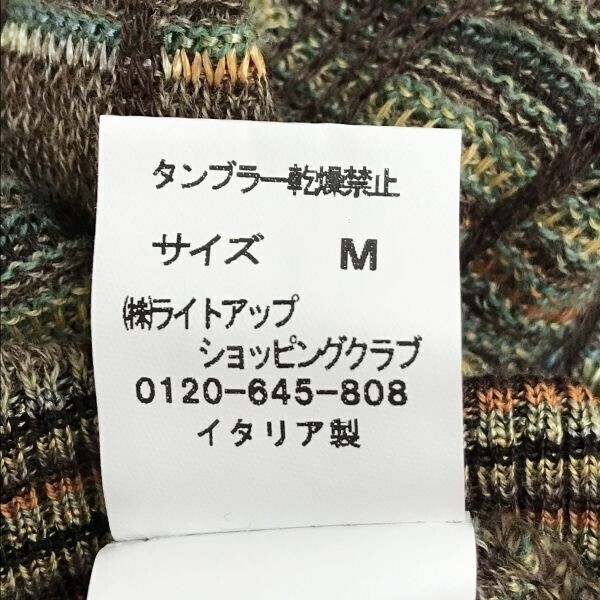 タンブラー乾燥禁止
サイズ M
㈱ライトアップ
ショッピングクラブ
0120-645-808
イタリア製